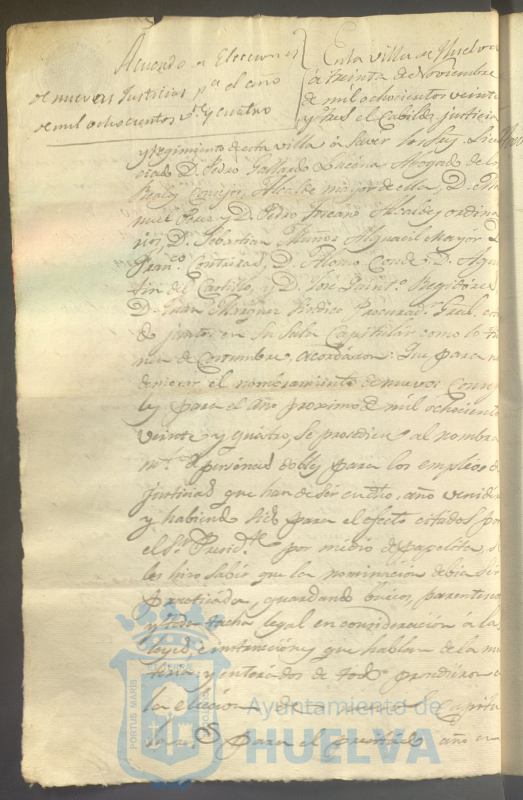 Acuerdo de Elecciones
de nuevas Justicias pa. el año
de mil ochocientos vte. y cuatro
En la villa de Huelva
á treinta de Noviembre
de mil ochocientos veinte
y tres el Cabildo, justicia
y regimiento de esta villa á saver los Sres. Licen
ciado D. Pedro Gallardo Abogado de los
Reales Consejos, Alcalde mayor de ella, D. Ma
nuel Perez y D. Pedro Alcaldes ordina
rios, D. Sebastian Muñoz Alguacil Mayor D.
Franco. Contreras, D. Alonso Conde, D. Agus
tin del Castillo, y D. José Regidores
D. Juan Sindico Procurador Gral. están
do juntos en su Sala Capitular como lo tie
nen de Costumbre, acordaron: Que para no
demorar el nombramiento de nuevos Conce
les para el año proximo de mil ochocientos
veinte y quatro, se procediese al nombra
mto. de personas dobles para los empleos de
justicias que han de ser en dicho año venidero
y habiendo sido para el efecto citados por
el Sr. Presidte. por medio de papeleta, se
les hizo saber que la nominación debia ser
practicada, guardando huecos, parentesco
y toda tacha legal en consideración a las
leyes, é instrucciones que hablan de la ma
teria, y enterados de todo procedieron a
la elección de Capitu
lares para el año en
PORTUS MARIS
Ayuntamiento de
HUELVA